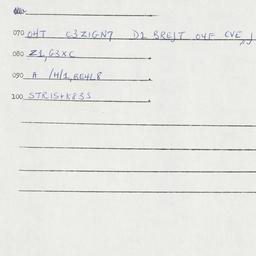 070 O4T C3Z1GN7 D1 BREJT O4F CVE
080 Z1,G3XC
090 A /H/1,BE4L8
100 STR1S+K83S